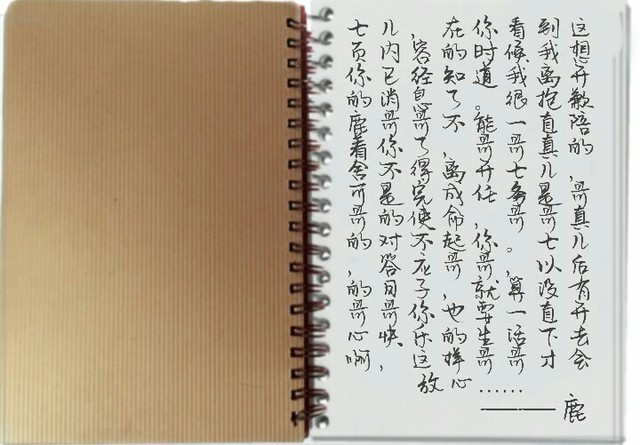 七儿,在你看到这
页内容的时候我想
你已经知道我离开
的消息了。很抱歉
鹿哥哥不能一直陪
着你了,哥哥真的
舍不得离开七儿,
可是完成任务是哥
哥的使命,哥哥真
的对不起你。七儿
,答应哥哥,以后
的日子,就算没有
哥哥你也要一直开
心快乐的生活下去
啊,这样哥哥才会
放心……
——鹿